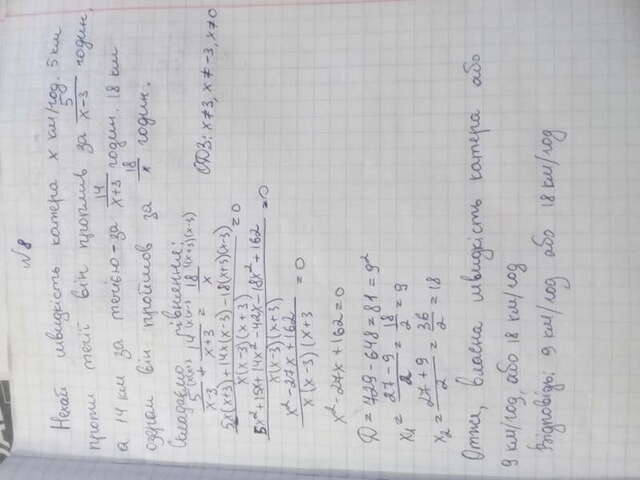 №8
Нехай швидкість катера x км/год. 5 км
проти течії він проплив за 5/(x-3) годин,
а 14 км за течією - за 14/(x+3) годин. 18 км
озером він пройшов за 18/x годин.
Складаємо рівняння:
5/(x-3) + 14/(x+3) = 18/x ОДЗ: x≠3, x≠-3, x≠0
(5x(x+3)+14x(x-3)-18(x+3)(x-3))/(x(x-3)(x+3)) = 0
(5x²+15x+14x²-42x-18x²+162)/(x(x-3)(x+3)) = 0
(x²-27x+162)/(x(x-3)(x+3) = 0
x²-27x+162=0
Д = 729-648=81=9²
x₁ = (27-9)/2 = 18/2 = 9
x₂ = (27+9)/2 = 36/2 = 18
Отже, власна швидкість катера або
9 км/год, або 18 км/год
Відповідь: 9 км/год або 18 км/год